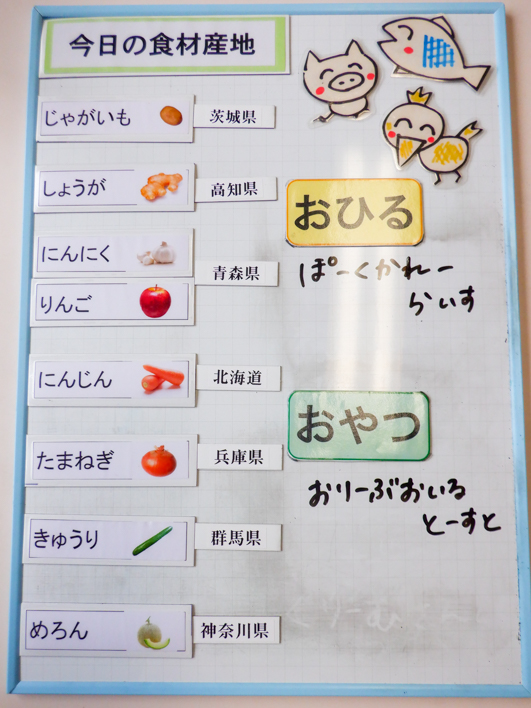 今日の食材産地
じゃがいも 茨城県
しょうが 高知県
にんにく
青森県
りんご
にんじん 北海道
たまねぎ 兵庫県
きゅうり 群馬県
めろん 神奈川県
おひる
ぽーくかれー
らいす
おやつ
おりーぶおいる
とーすと